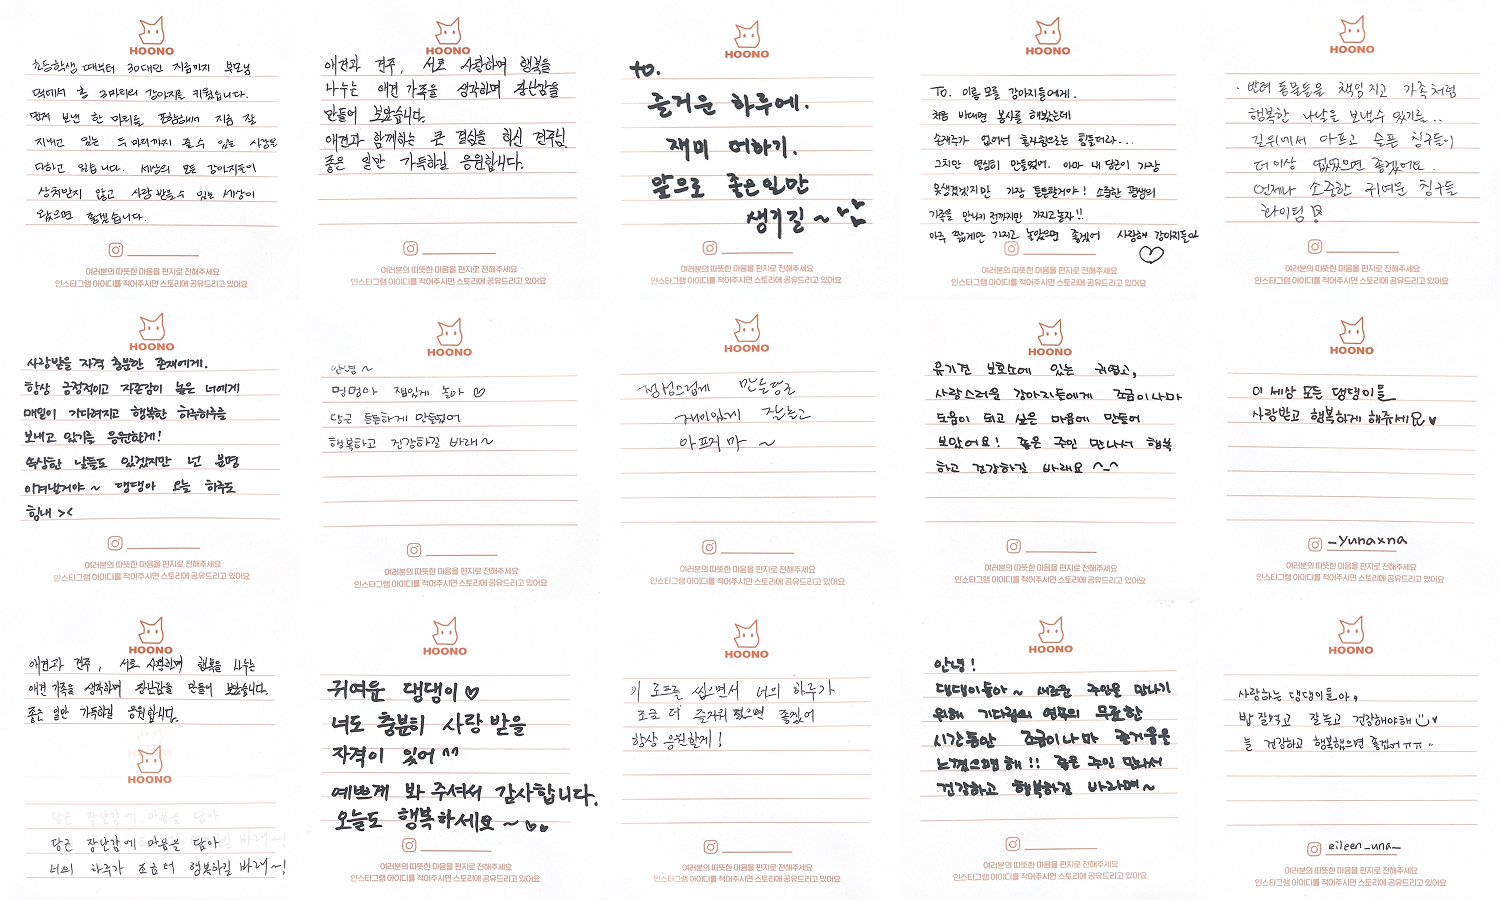 HOONO
초등학생 때부터 30대인 지금까지 부모님
댁에서 총 3마리의 강아지를 키웠습니다.
먼저 보낸 한 마리를 포함해서 지금 잘
지내고 있는 두 마리까지 줄 수 있는 사랑은
다하고 있습니다. 세상의 모든 강아지들이
상처받지 않고 사랑 받을 수 있는 세상이
왔으면 좋겠습니다.
여러분의 따뜻한 마음을 편지로 전해주세요
인스타그램 아이디를 적어주시면 스토리에 공유드리고 있어요
HOONO
애견과 견주, 서로 사랑하며 행복을
나누는 애견 가족을 생각하며 장난감을
만들어 보았습니다.
애견과 함께하는 큰 결심을 하신 견주님
좋은 일만 가득하길 응원합니다.
여러분의 따뜻한 마음을 편지로 전해주세요
인스타그램 아이디를 적어주시면 스토리에 공유드리고 있어요
HOONO
to.
즐거운 하루에.
재미 더하기.
앞으로 좋은일만
생기길~
여러분의 따뜻한 마음을 편지로 전해주세요
인스타그램 아이디를 적어주시면 스토리에 공유드리고 있어요
HOONO
To. 이름 모를 강아지들에게.
처음 비대면 봉사를 해봤는데
손재주가 없어서 혼자힘으로는 힘들더라...
그치만 열심히 만들었어. 아마 내 당근이 가장
못생겼겠지만 가장 튼튼할거야! 소중한 평생의
가족을 만나기 전까지만 가지고 놀자!!
아주 짧게만 가지고 놀았으면 좋겠어 사랑해 강아지들아
여러분의 따뜻한 마음을 편지로 전해주세요
인스타그램 아이디를 적어주시면 스토리에 공유드리고 있어요
HOONO
반려 동물들을 책임 지고 가족처럼
행복한 나날을 보낼수 있기를..
길위에서 아프고 슬픈 친구들이
더이상 없었으면 좋겠어요.
언제나 소중한 귀여운 친구들
화이팅!
여러분의 따뜻한 마음을 편지로 전해주세요
인스타그램 아이디를 적어주시면 스토리에 공유드리고 있어요
HOONO
사랑받을 자격 충분한 존재에게.
항상 긍정적이고 자존감이 높은 너에게
매일이 기다려지고 행복한 하루하루를
보내고 있기를 응원할게!
속상한 날들도 있겠지만 넌 분명
이겨낼거야~ 댕댕아 오늘 하루도
힘내 ><
여러분의 따뜻한 마음을 편지로 전해주세요
인스타그램 아이디를 적어주시면 스토리에 공유드리고 있어요
HOONO
안녕~
멍멍아 재밌게 놀아 ♡
당근 튼튼하게 만들었어
행복하고 건강하길 바래~
여러분의 따뜻한 마음을 편지로 전해주세요
인스타그램 아이디를 적어주시면 스토리에 공유드리고 있어요
HOONO
정성스럽게 만들당근
재미있게 잘놀고
아프지 마~
여러분의 따뜻한 마음을 편지로 전해주세요
인스타그램 아이디를 적어주시면 스토리에 공유드리고 있어요
HOONO
유기견 보호소에 있는 귀엽고,
사랑스러운 강아지들에게 조금이나마
도움이 되고 싶은 마음에 만들어
보았어요! 좋은 주인 만나서 행복
하고 건강하길 바래요 ^-^
여러분의 따뜻한 마음을 편지로 전해주세요
인스타그램 아이디를 적어주시면 스토리에 공유드리고 있어요
HOONO
이 세상 모든 댕댕이들
사랑받고 행복하게 해주세요 ♥
_yunaxna
여러분의 따뜻한 마음을 편지로 전해주세요
인스타그램 아이디를 적어주시면 스토리에 공유드리고 있어요
HOONO
애견과 견주, 서로 사랑하며 행복을 나누는
애견 가족을 생각하며 장난감을 만들어 보았습니다.
좋은 일만 가득하길 응원합니다.
HOONO
당근 장난감에 마음을 담아
당근 장난감에 마음을 담아
너의 하루가 조금 더 행복하길 바래~!
HOONO
귀여운 댕댕이♡
너도 충분히 사랑 받을
자격이 있어^^
예쁘게 봐 주셔서 감사합니다.
오늘도 행복하세요~
여러분의 따뜻한 마음을 편지로 전해주세요
인스타그램 아이디를 적어주시면 스토리에 공유드리고 있어요
HOONO
이 로프를 씹으면서 너의 하루가
조금 더 즐거워 졌으면 좋겠어
항상 응원할게!
여러분의 따뜻한 마음을 편지로 전해주세요
인스타그램 아이디를 적어주시면 스토리에 공유드리고 있어요
HOONO
안녕!
댕댕이들아~ 새로운 주인을 만나기
위해 기다림의 연속의 무료한
시간동안 조금이나마 즐거움을
느꼈으면 해!! 좋은 주인 만나서
건강하고 행복하길 바라며~
여러분의 따뜻한 마음을 편지로 전해주세요
인스타그램 아이디를 적어주시면 스토리에 공유드리고 있어요
HOONO
사랑하는 댕댕이들아,
밥 잘먹고 잘놀고 건강해야해
늘 건강하고 행복했으면 좋겠어ㅠㅠ..
eileen_una_
여러분의 따뜻한 마음을 편지로 전해주세요
인스타그램 아이디를 적어주시면 스토리에 공유드리고 있어요